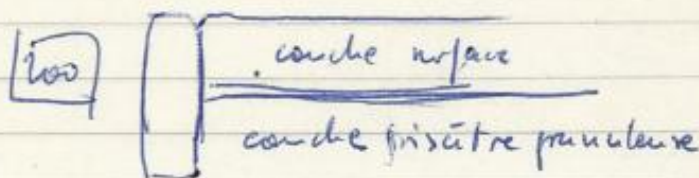 200
couche surface
couche grisâtre granuleuse